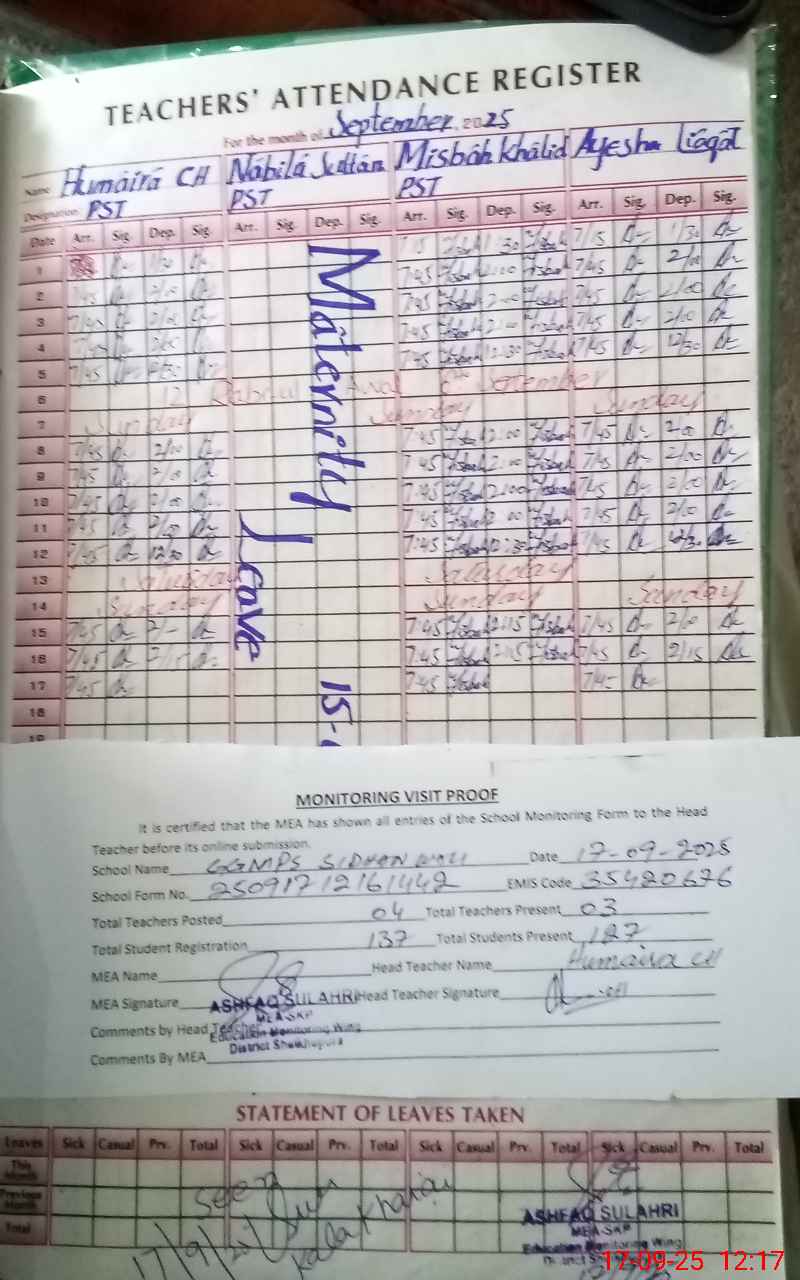 TEACHERS' ATTENDANCE REGISTER
For the month of September 2025
Name Humaira CH Nabila Sultan Misbah Khalid Ayesha Liaqat
Designation PST PST PST
Date Arr. Sig. Dep. Sig. Arr. Sig. Dep. Sig. Arr. Sig. Dep. Sig. Arr. Sig. Dep. Sig.
Maternity Leave 15-
1 1:30 7/15 1/30
2 7/45 2/00 7:45 2:00 7/45 2/00
3 7/45 2/00 7:45 2:00 7/45 2/00
4 7/45 2/00 7:45 2:00 7/45 2/00
5 7/45 7:45 12:30 7/45 12/30
6 12 Rabi ul Awal 6 September
7 Sunday Sunday Sunday
8 7/45 2/00 7:45 2:00 7/45 2/00
9 7/45 2/00 7:45 2:00 7/45 2/00
10 7/45 2/00 7:45 2:00 7/45 2/00
11 7/45 2/00 7:45 2:00 7/45 2/00
12 7/45 12/30 7:45 12:30 7/45 12/30
13 Saturday Saturday
14 Sunday Sunday Sunday
15 7/45 2/- 7:45 2:15 7/45 2/00
16 7/45 2/15 7:45 2:15 7/45 2/15
17 7/45 7:45 7/45
18
19
MONITORING VISIT PROOF
It is certified that the MEA has shown all entries of the School Monitoring Form to the Head
Teacher before its online submission.
School Name GGMPS SIDHAN WALI Date 17-09-2025
School Form No. 25091712161442 EMIS Code 35420676
Total Teachers Posted 04 Total Teachers Present 03
Total Student Registration 137 Total Students Present 127
MEA Name Head Teacher Name Humaira CH
MEA Signature Head Teacher Signature
ASHFAQ SULAHRI
MEA-SKP
Education Monitoring Wing
District Sheikhupura
Comments by Head Teacher
Comments By MEA
STATEMENT OF LEAVES TAKEN
Leaves Sick Casual Prv. Total Sick Casual Prv. Total Sick Casual Prv. Total Sick Casual Prv. Total
This Month
Previous Month
Total
Seen
17/9/25
ASHFAQ SULAHRI
MEA-SKP
Education Monitoring Wing
17-09-25 12:17